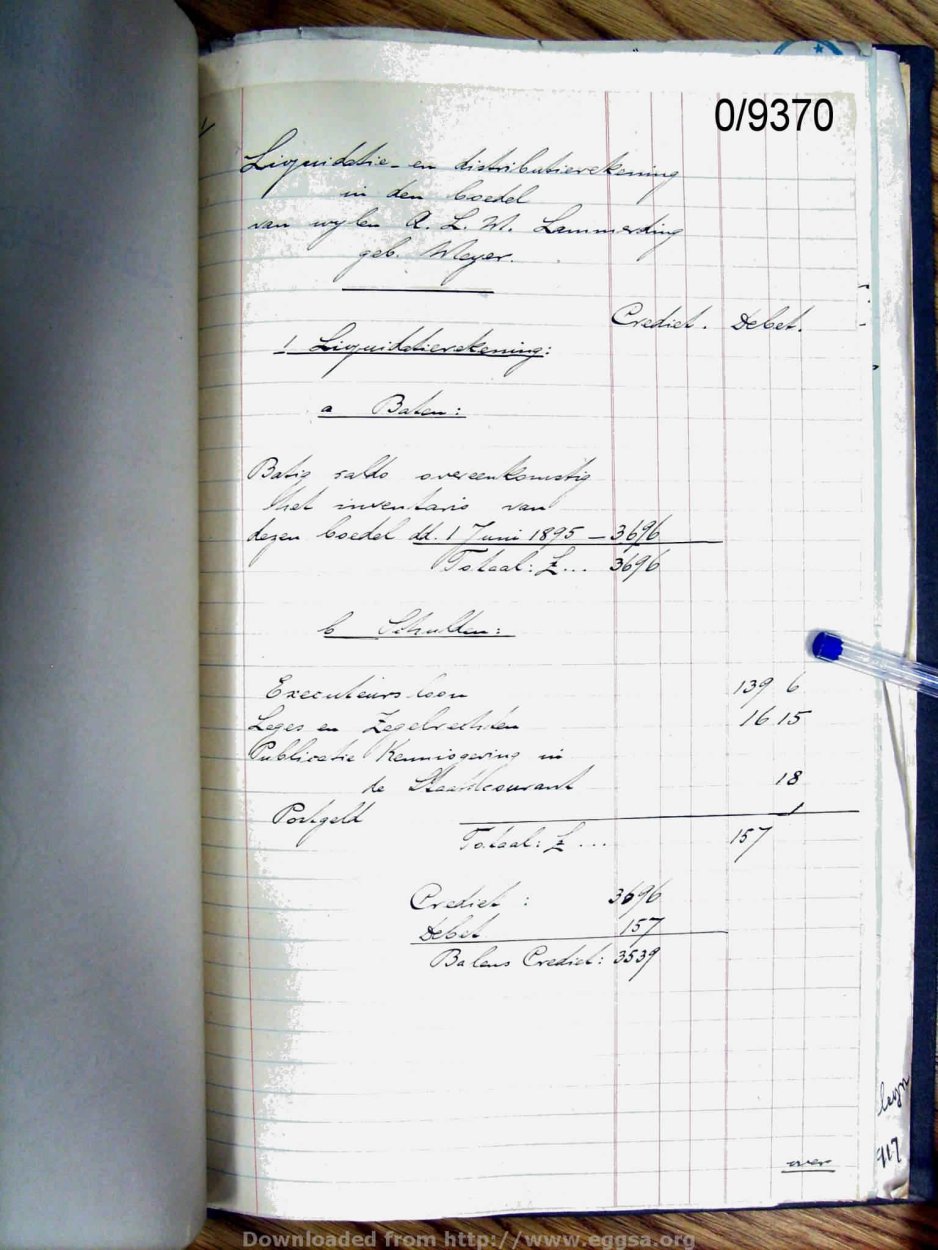 0/9370
Liquidatie- en distributierekening
in den boedel
van wylen A. L. W. Lammerding
geb. Meyer.
Crediet. Debet.
1 Liquidatierekening:
a Baten:
Batig saldo overeenkomstig
het inventaris van
dezen boedel dd. 1 Juni 1895 – 3696
Totaal: £... 3696
b Schulden:
Executeurs loon 139 6
Leges en Zegelrechten 16.15
Publicatie Kennisgeving in
de Staatscourant 18
Portgeld 1
Totaal: £ ... 157
Crediet : 3696
Debet 157
Balans Credict: 3539
over
117
Downloaded from http://www.eggsa.org